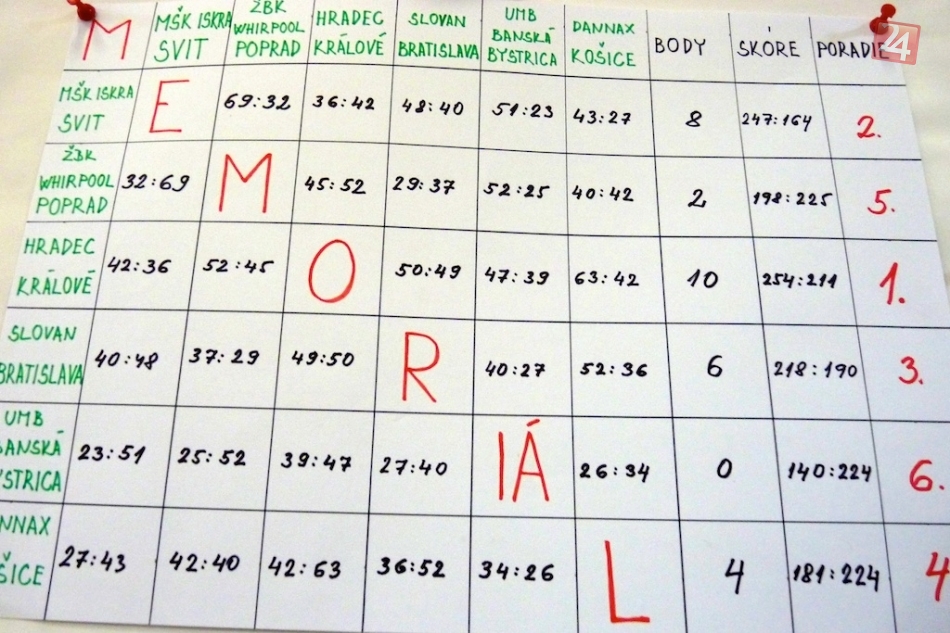 M MŠK ISKRA SVIT ŽBK WHIRPOOL POPRAD HRADEC KRÁLOVÉ SLOVAN BRATISLAVA UMB BANSKÁ BYSTRICA DANNAX KOŠICE BODY SKÓRE PORADIE
MŠK ISKRA SVIT E 69:32 36:42 48:40 51:23 43:27 8 247:164 2.
ŽBK WHIRPOOL POPRAD 32:69 M 45:52 29:37 52:25 40:42 2 198:225 5.
HRADEC KRÁLOVÉ 42:36 52:45 O 50:49 47:39 63:42 10 254:211 1.
SLOVAN BRATISLAVA 40:48 37:29 49:50 R 40:27 52:36 6 218:190 3.
UMB BANSKÁ YSTRICA 23:51 25:52 39:47 27:40 IÁ 26:34 0 140:224 6.
NNAX ŠICE 27:43 42:40 42:63 36:52 34:26 L 4 181:224 4
24